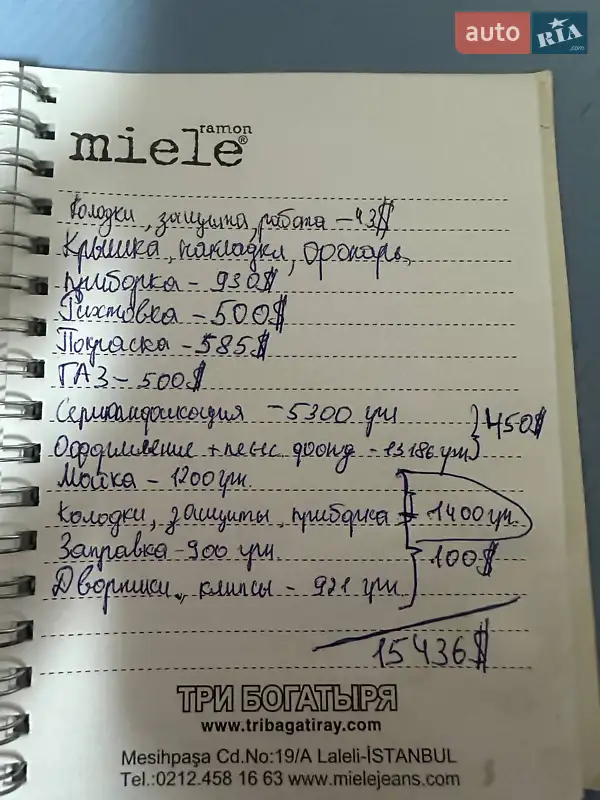 auto RIA .com
ramon
miele®
Колодки, защита, работа – 43$
Крышка, накладки, фонарь,
приборка – 930$
Рихтовка – 500$
Покраска – 585$
ГАЗ – 500$
Сертификация – 5300 грн
450$
Оформление + пенс. фонд – 13186 грн
Мойка – 1200 грн.
Колодки, защиты, приборка – 1400 грн.
Заправка – 900 грн.
100$
Дворники, клипсы – 921 грн.
15436$
ТРИ БОГАТЫРЯ
www.tribagatiray.com
Mesihpaşa Cd.No:19/A Laleli-İSTANBUL
Tel.:0212.458 16 63 www.mielejeans.com